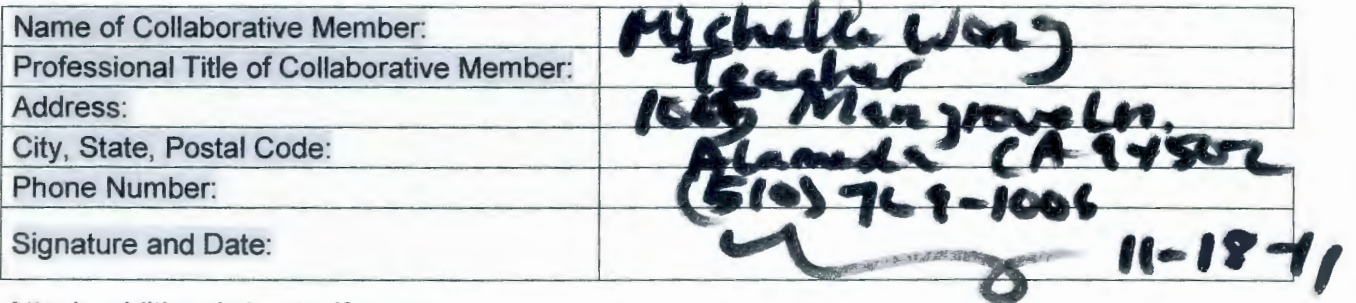 Name of Collaborative Member: Michelle Wong
Professional Title of Collaborative Member: Teacher
Address: Mangrove Ln.
City, State, Postal Code: Alameda CA 94502
Phone Number: (510)
Signature and Date: 11-18-11